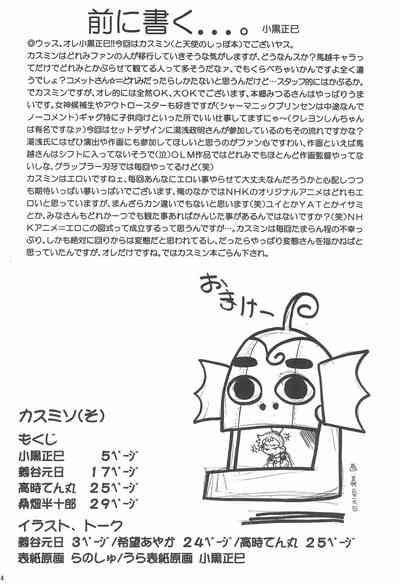 前に書く...。 小黒正巳
◎ウッス。オレ小黒正巳!!今回はカスミン(と天使のしっぽ本)でございヤス。
カスミンはどれみファンの人が移行していきそうな気がしますが、どうなんスか?馬越キャラっ
てだけでどれみとかぶらせて観てる人って多そうだなァ。でもくらべちゃいかんですよ全く違
うでしょ?コメットさん☆=どれみだったらしかたないと思うんだけど…スタッフ的にはかぶるか。
でカスミンですが、オレ的には全然OK、大OKでございます。本郷みつるさんはやっぱりうま
いです。女神候補生やアウトロースターも好きですが(シャーマニックプリンセンは中途なんで
ノーコメント)ギャグ特に子供向けといった所でいい仕事してますにゃ~(クレヨンしんちゃん
は有名ですなァ)今回はセットデザインに湯浅政明さんが参加しているのもその流れですかな?
湯浅氏にはぜひ演出や作画にも参加してほしいと思うのがファン心ですわい。作画といえば馬
越さんはシフトに入ってないそうで(泣)OLM作品ではどれみでもほとんど作画監督やってな
いしな、グラップラー刃牙では毎回やってるけど(笑)
カスミンはエロいですねェ、毎回あんなにエロい事やらせて大丈夫なんだろうかと心配しつつ
も期待いっぱい夢いっぱいでございます。俺のなかではNHKのオリジナルアニメはどれもエロ
いと思っていますが、まんざらカン違いでもないと思います(笑)ユイとかYATとかイサミ
とか、みなさんもどれか一つでも観た事あればかんじた事があるんではないですか?(笑)NH
Kアニメ=エロこの図式って成立するって思うんですが…。カスミンは毎回たまらん程の不幸っ
ぷり、しかも絶対に回りからは変態だと思われてるし、だったらやっぱり変態さんを描かねばと
思っていたんですが、オレだけですね。ではカスミン本ごらん下され。
おまけー
カスミソ(そ)
もくじ
小黒正巳 5ページ
鷧谷元日 17ページ
高時てん丸 25ページ
桑畑半十郎 29ページ
イラスト、トーク
鷧谷元日 3ページ/希望あやか 24ページ/高時てん丸 25ページ
表紙原画 らのしゅ/うら表紙原画 小黒正巳
4